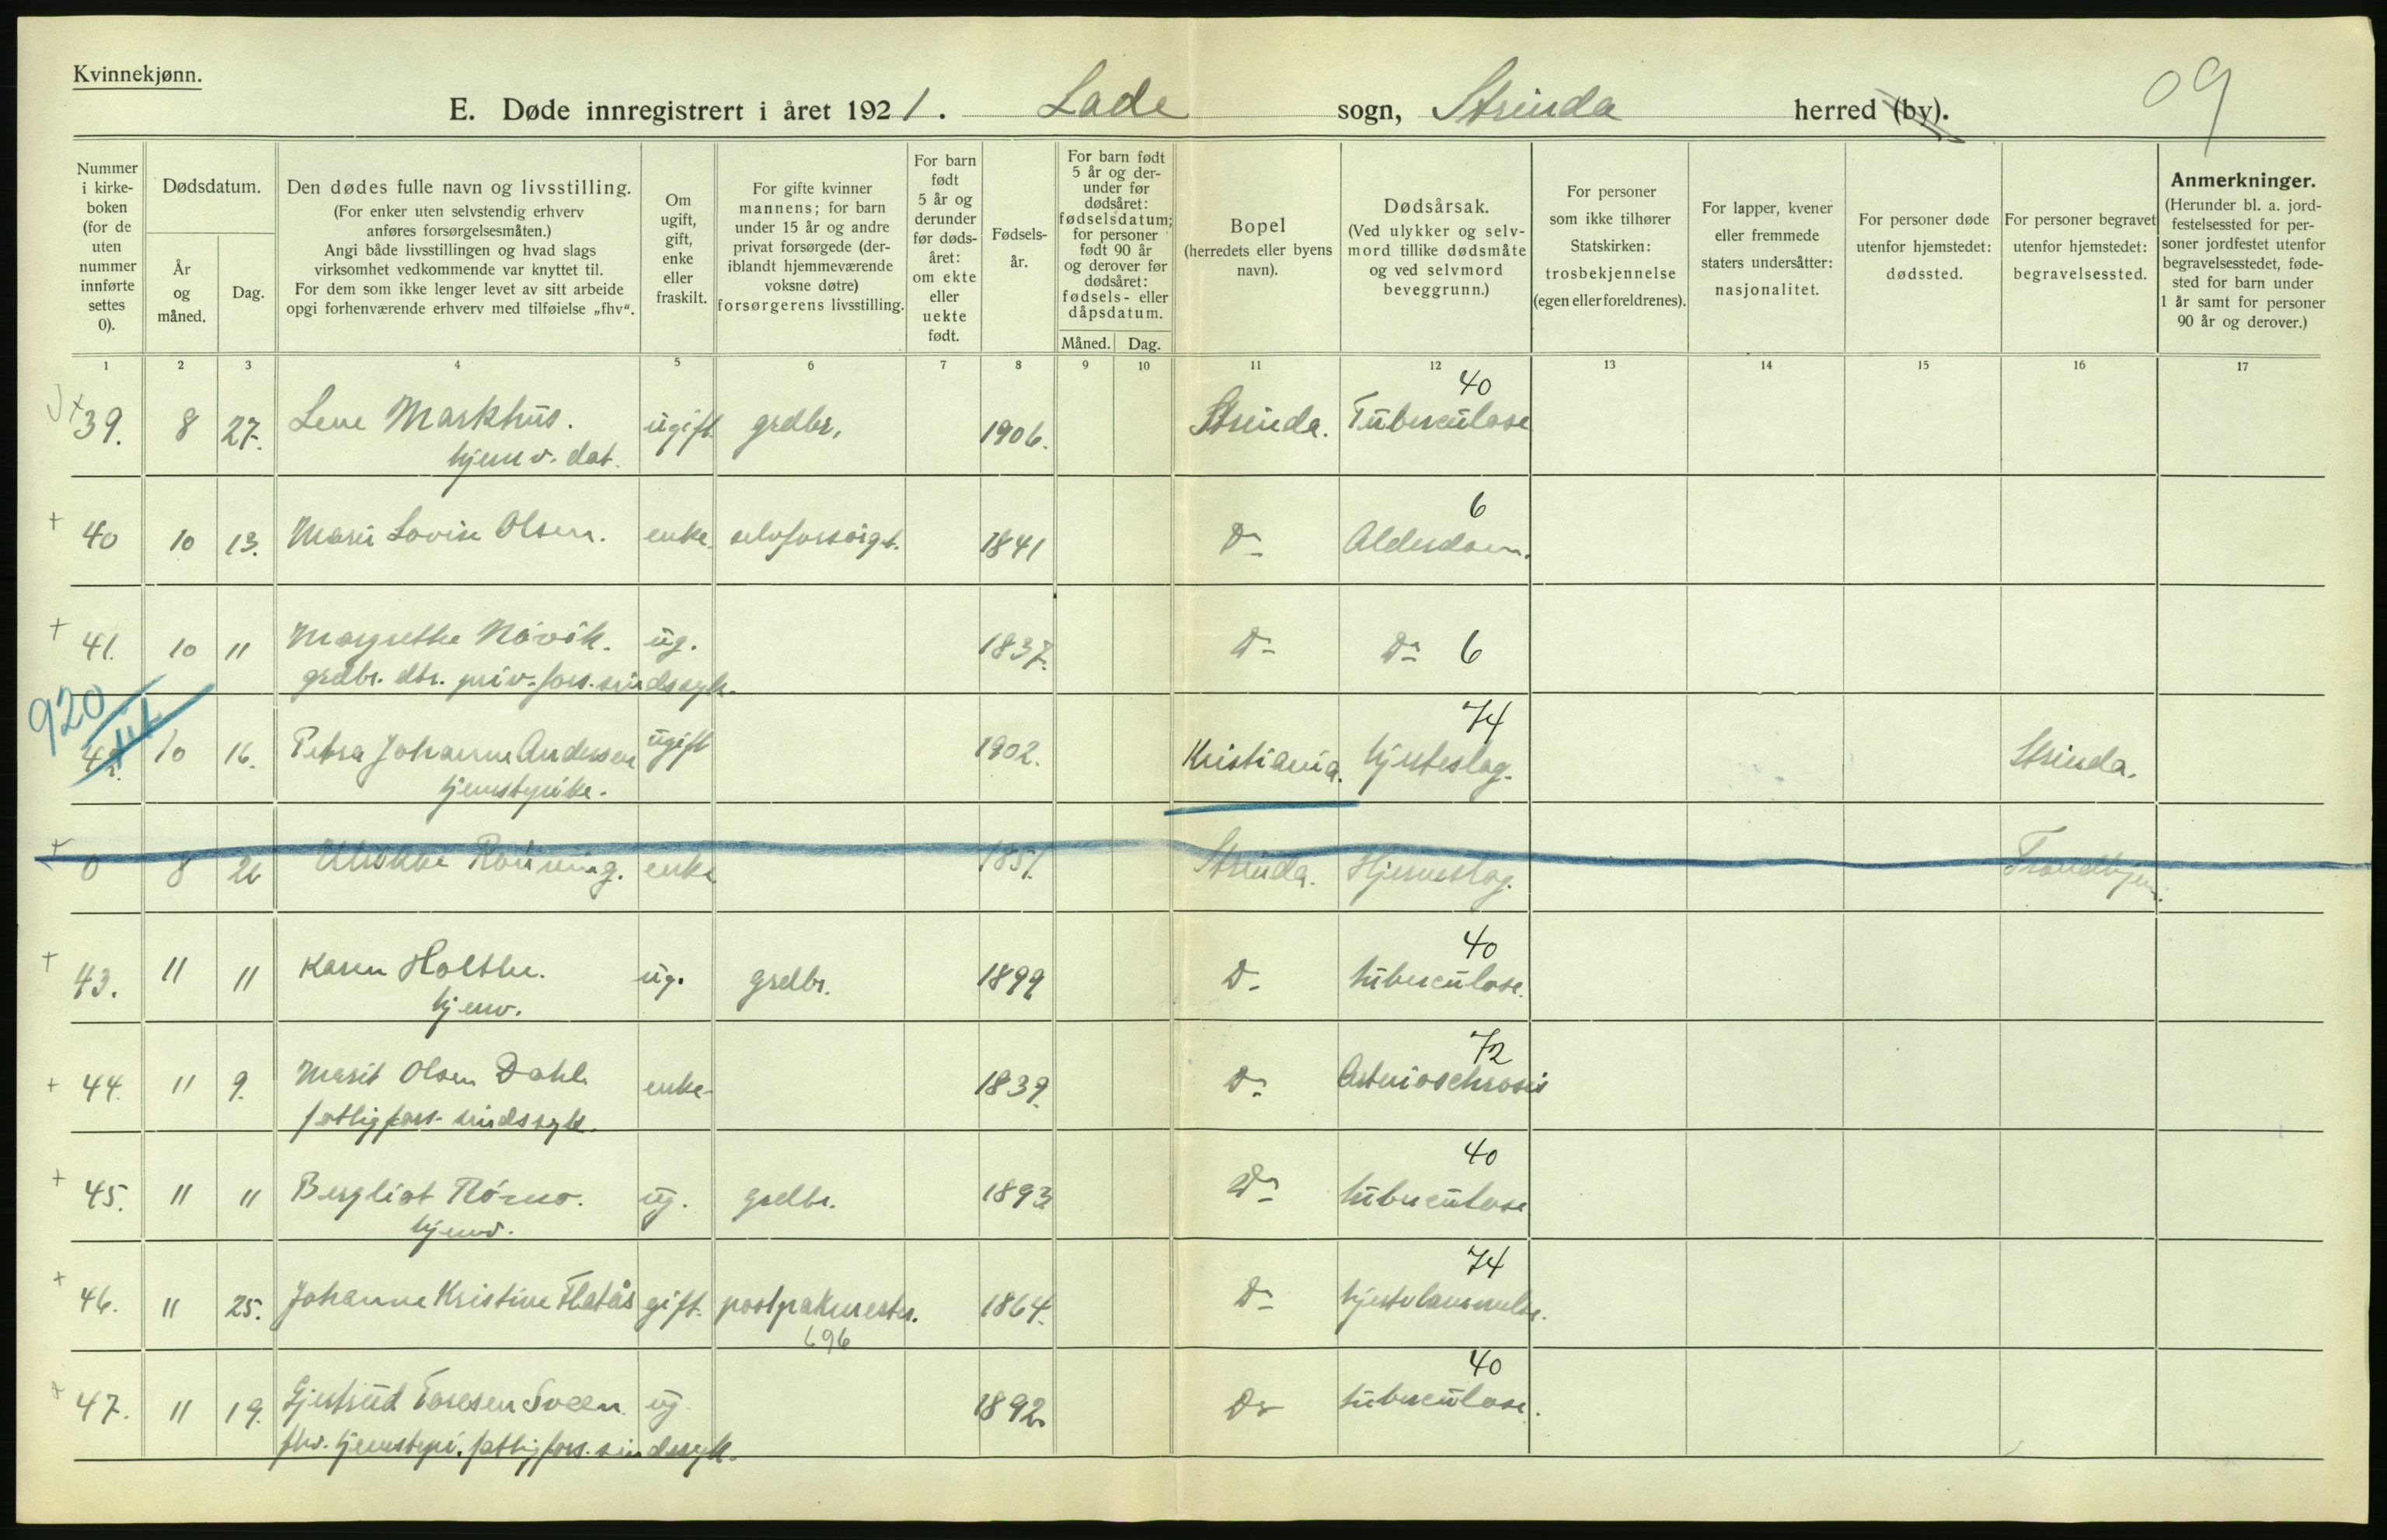 Kvinnekjønn.
E. Døde innregistrert i året 1921. Lade sogn, Strinda herred (by).
09
Nummer i kirkeboken (for de uten nummer innførte settes 0).
Dødsdatum.
År og måned.
Dag.
Den dødes fulle navn og livsstilling.
(For enker uten selvstendig erhverv
anføres forsørgelsesmåten.)
Angi både livsstillingen og hvad slags
virksomhet vedkommende var knyttet til.
For dem som ikke lenger levet av sitt arbeide
opgi forhenværende erhverv med tilføielse „fhv“.
Om
ugift,
gift,
enke
eller
fraskilt.
For gifte kvinner
mannens; for barn
under 15 år og andre
privat forsørgede (der-
iblandt hjemmeværende
voksne døtre)
forsørgerens livsstilling.
For barn
født
5 år og
derunder
før døds-
året:
om ekte
eller
uekte
født.
Fødsels-
år.
For barn født
5 år og der-
under før
dødsåret:
fødselsdatum;
for personer
født 90 år
og derover før
dødsåret:
fødsels- eller
dåpsdatum.
Måned. Dag.
Bopel
(herredets eller byens
navn).
Dødsårsak.
(Ved ulykker og selv-
mord tillike dødsmåte
og ved selvmord
beveggrunn.)
For personer
som ikke tilhører
Statskirken:
trosbekjennelse
(egen eller foreldrenes).
For lapper, kvener
eller fremmede
staters undersåtter:
nasjonalitet.
For personer døde
utenfor hjemstedet:
dødssted.
For personer begravet
utenfor hjemstedet:
begravelsessted.
Anmerkninger.
(Herunder bl. a. jord-
festelsessted for per-
soner jordfestet utenfor
begravelsesstedet, føde-
sted for barn under
1 år samt for personer
90 år og derover.)
1 2 3 4 5 6 7 8 9 10 11 12 13 14 15 16 17
40
39. 8 27. Lene Markhus. ugift grdbr. 1906. Strinda. Tuberculose
hjemv. dat.
6
40 10 13. Marie Lovise Olsen. enke. selvforsørget. 1841 Do Alderdom.
41. 10 11 Margrethe Návik. ug. 1837. Do Do 6
grdbr. dtr. priv. fors. sindssyk.
920
74
42. 10 16. Petra Johanne Andersen ugift 1902. Kristiania. hjerteslag. Strinda.
tjenestepike.
0 8 26 Ulrikke Rønning. enke 1851. Strinda. Hjerneslag. Trondhjem.
40
43. 11 11 Karen Holthe. ug. grdbr. 1899 Do tuberculose.
hjemv.
72
44. 11 9. Marit Olsen Dahl enke 1839. Do Arteriosclerosis
fattigfors. sindssyk.
40
45. 11 11 Bergliot Rómo. ug. grdbr. 1893 Do tuberculose
hjemv.
74
46. 11 25. Johanne Kristine Flatås gift. postpakmester. 1864. Do hjertelammelse.
696
40
47. 11 19. Gjertrud Toresen Sveen ug. 1892. Do tuberculose.
fhv. tjenestepi. fattigfors. sindssyk.